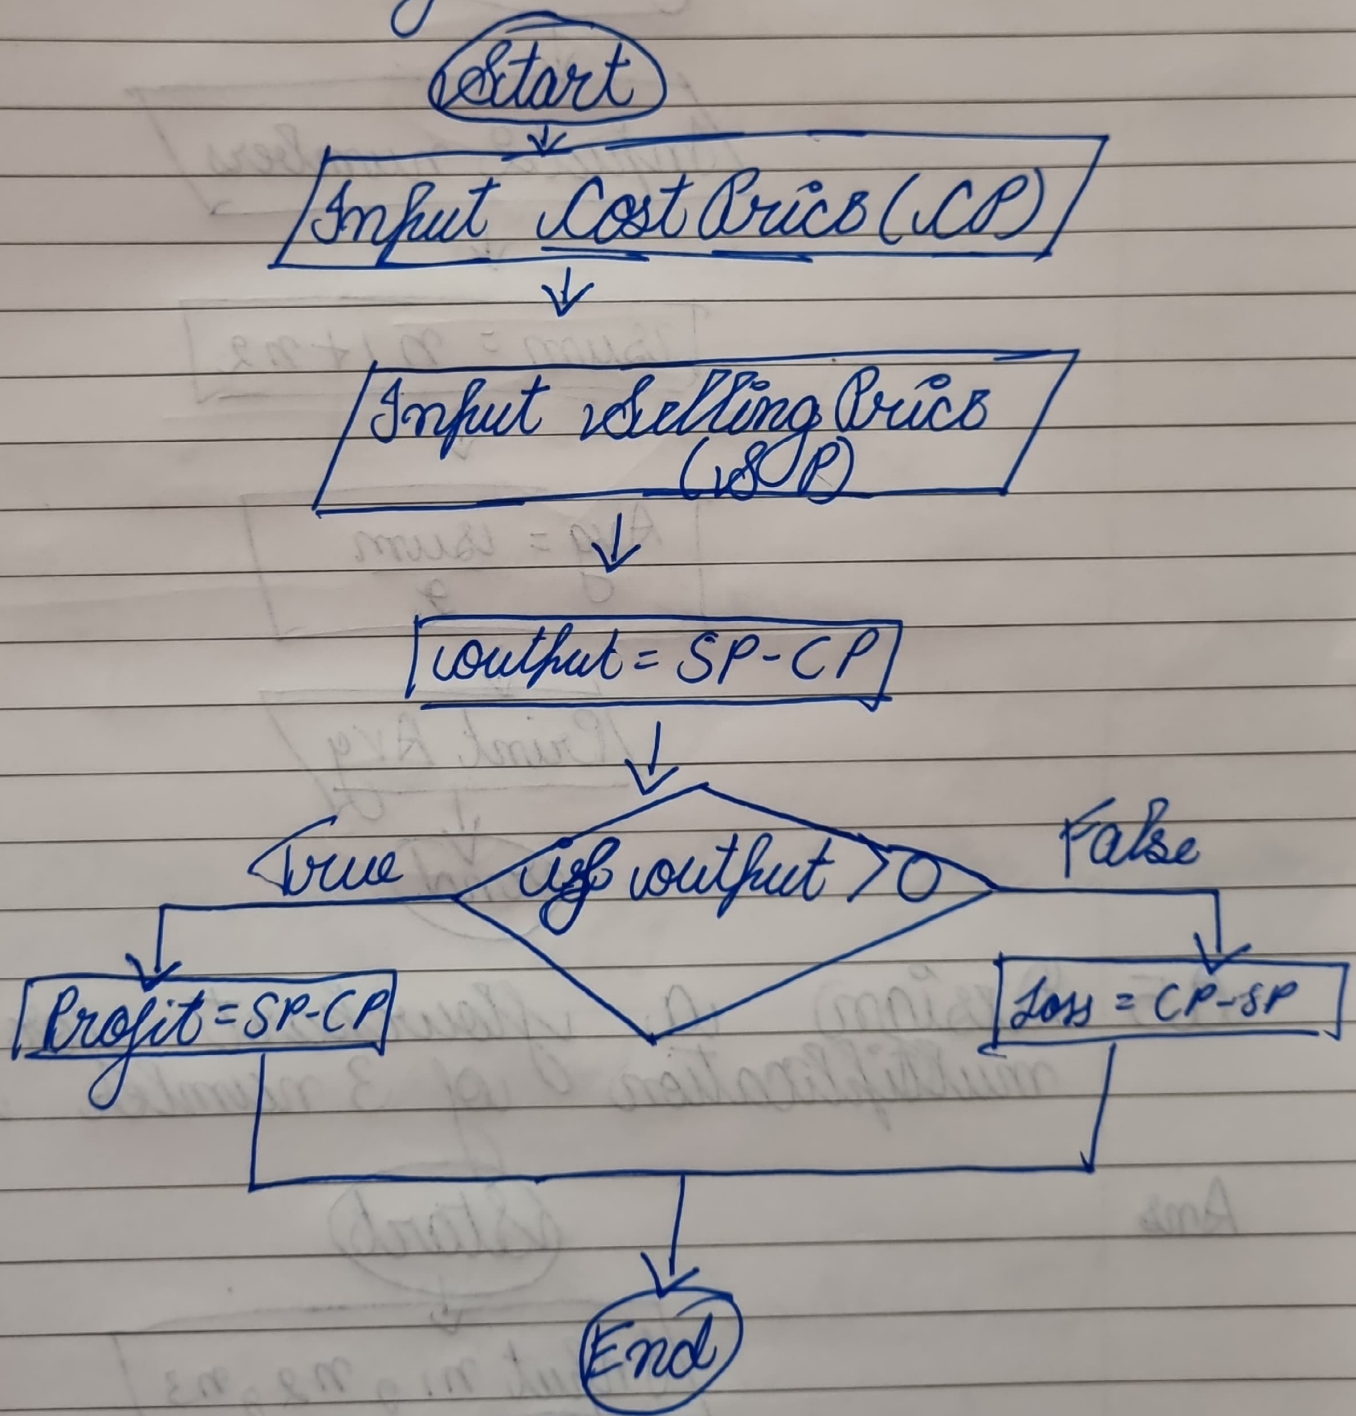 Start
Input Cost Price (CP)
Input Selling Price
(SP)
output = SP-CP
True
if output >0
False
Profit = SP-CP
Loss = CP-SP
End